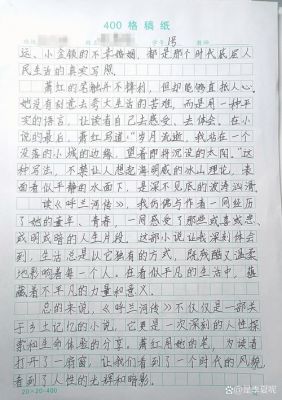 400格稿纸
学号 15
运、小金锁的不幸婚姻,都是那个时代底层人
民生活的真实写照。
萧红的笔触并不锋利,但却能够直抵人心。
她没有刻意去夸大生活的苦难,而是用一种平
实的语言,让读者自己去感受、去体会。在小
说的最后,萧红写道:“岁月流逝,我站在一个
没落的小城的边缘,望着即将沉没的太阳。”这
种写法,不禁让人想起海明威的冰山理论,表
面看似平静的水面下,是深不见底的波涛汹涌。
读《呼兰河传》,我仿佛与作者一同经历
了她的童年、青春,一同感受了那些或喜或悲、
或明或暗的人生片段。这部小说让我深刻体会
到,生活总是以它独有的方式,既残酷又温柔
地影响着每一个人。在看似平凡的生活中,蕴
藏着不平凡的力量和意义。
总的来说,《呼兰河传》不仅仅是一部关
于乡土记忆的小说,它更是一次深刻的人性探
索和生命体验的分享。萧红用她的笔,为读者
打开了一扇窗,让我们看到了一个时代的风貌,
看到了人性的光辉和暗影。
20×20=400
@是李夏呢